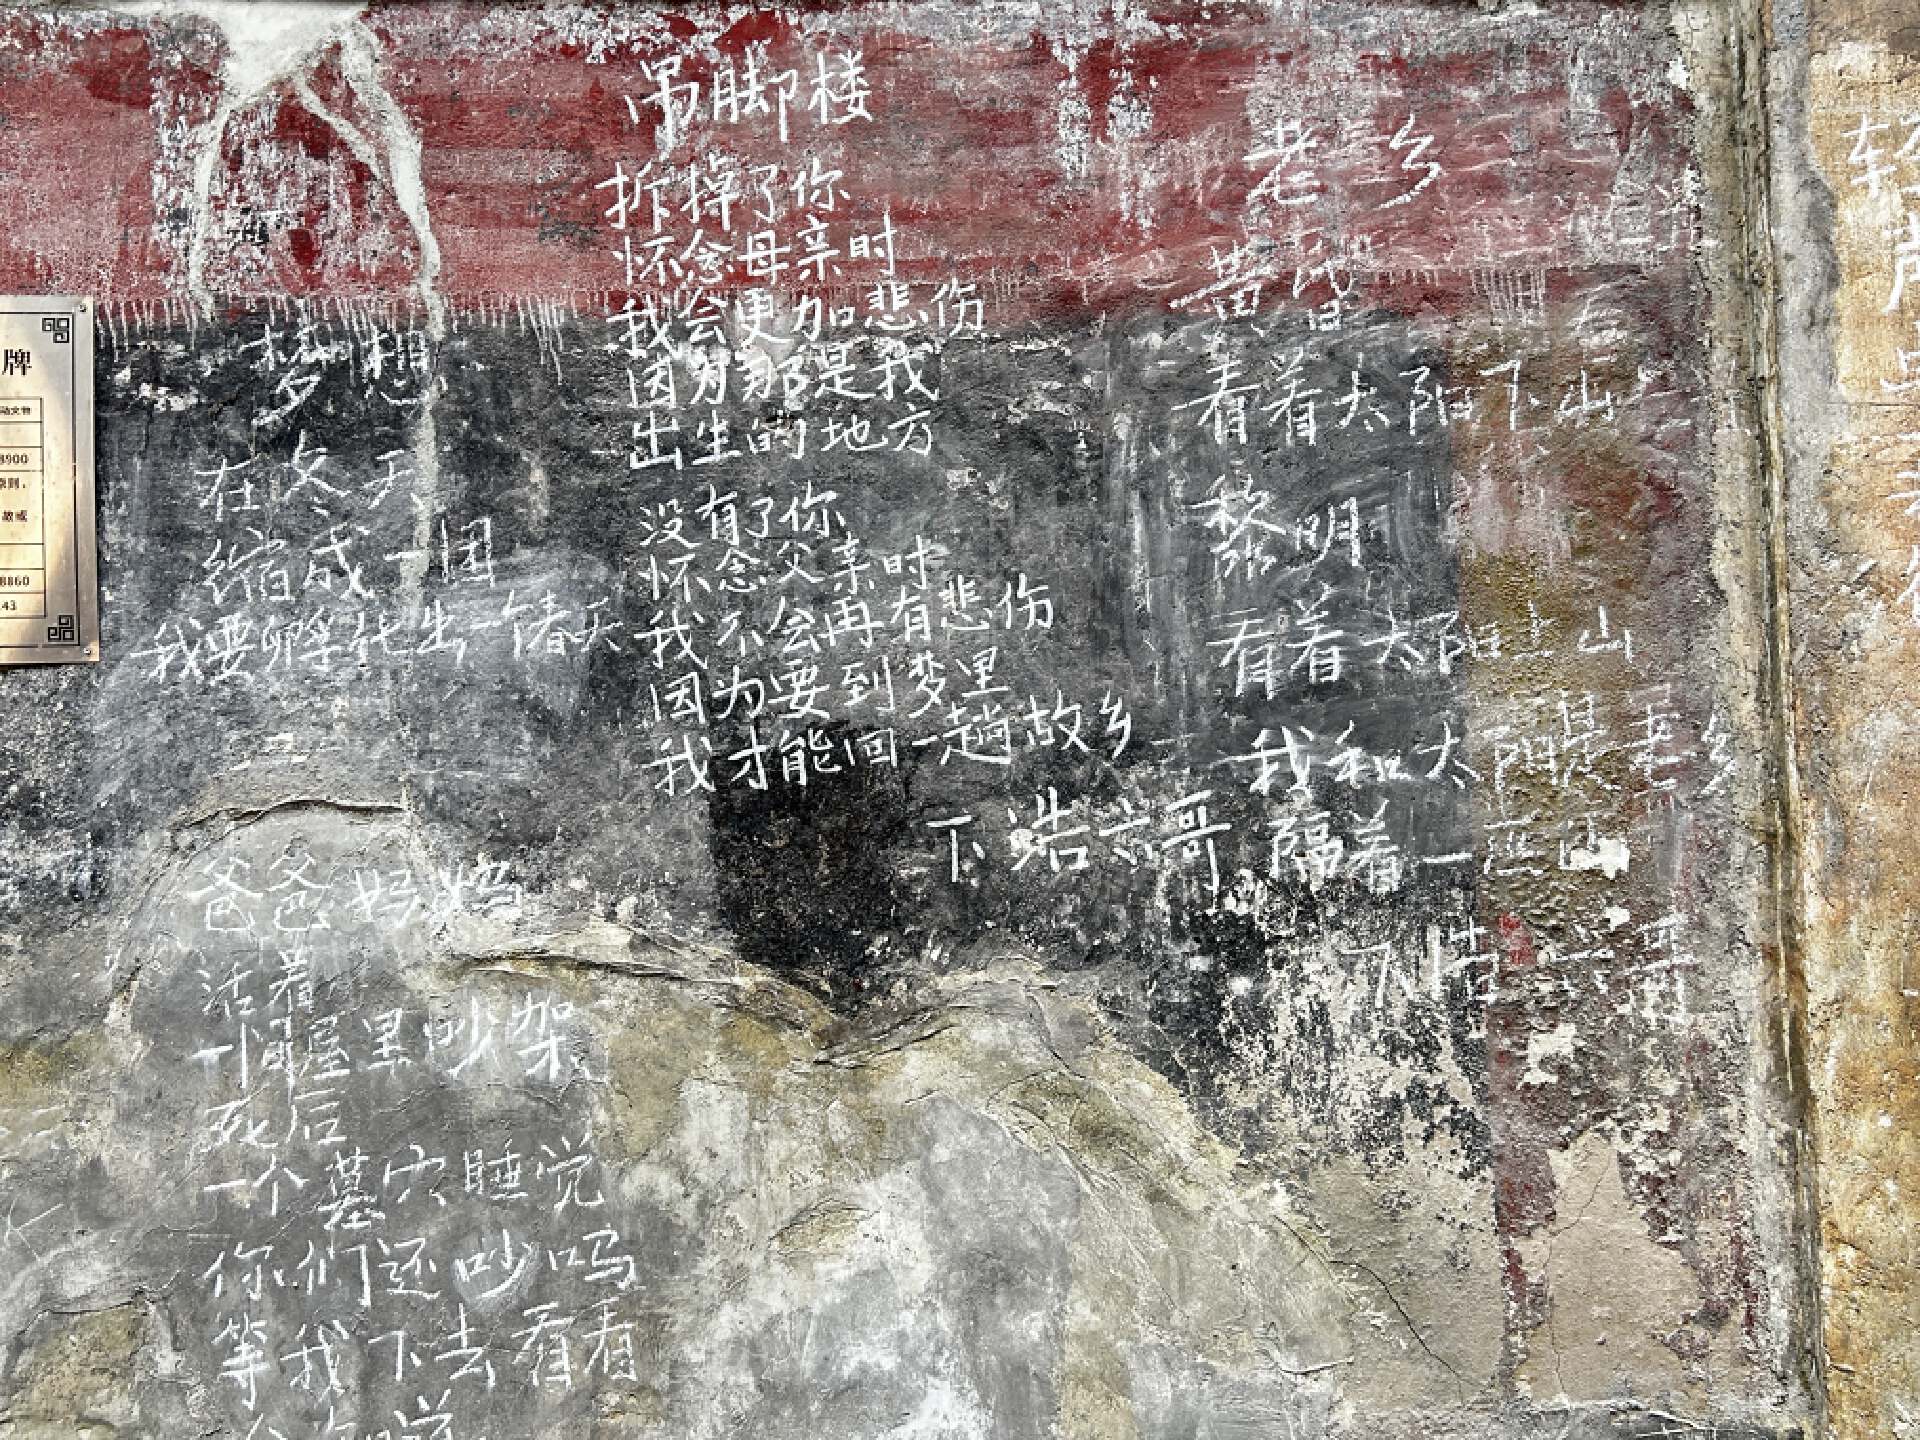 牌
动文物
8900
原则，
故或
8860
43
梦想
在冬天
缩成一团
我要孵化出一个春天
爸爸妈妈
活着
一间屋里吵架
死后
一个墓穴睡觉
你们还吵吗
等我下去看看
吊脚楼
拆掉了你
怀念母亲时
我会更加悲伤
因为那是我
出生的地方
没有了你
怀念父亲时
我不会再有悲伤
因为要到梦里
我才能回一趟故乡
下浩六哥
老乡
黄昏
看着太阳下山
黎明
看着太阳上山
我和太阳是老乡
隔着一座山
下浩六哥